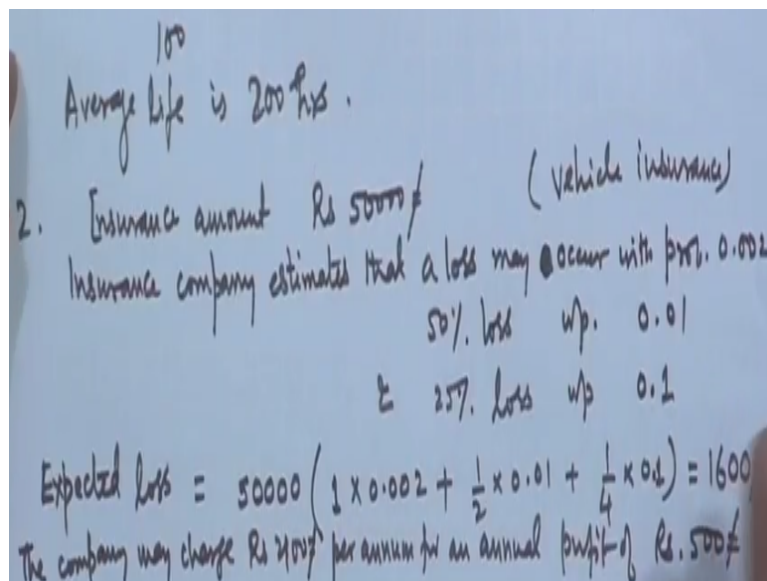 100
Average life is 200 hrs.
2. Insurance amount Rs 50000/- (vehicle insurance)
Insurance company estimates that a loss may occur with prob. 0.002
50% loss w/p. 0.01
& 25% loss w/p 0.1
Expected loss = 50000 ( 1 × 0.002 + 1/2 × 0.01 + 1/4 × 0.1 ) = 1600
The company may charge Rs 2100/- per annum for an annual profit of Rs. 500/-